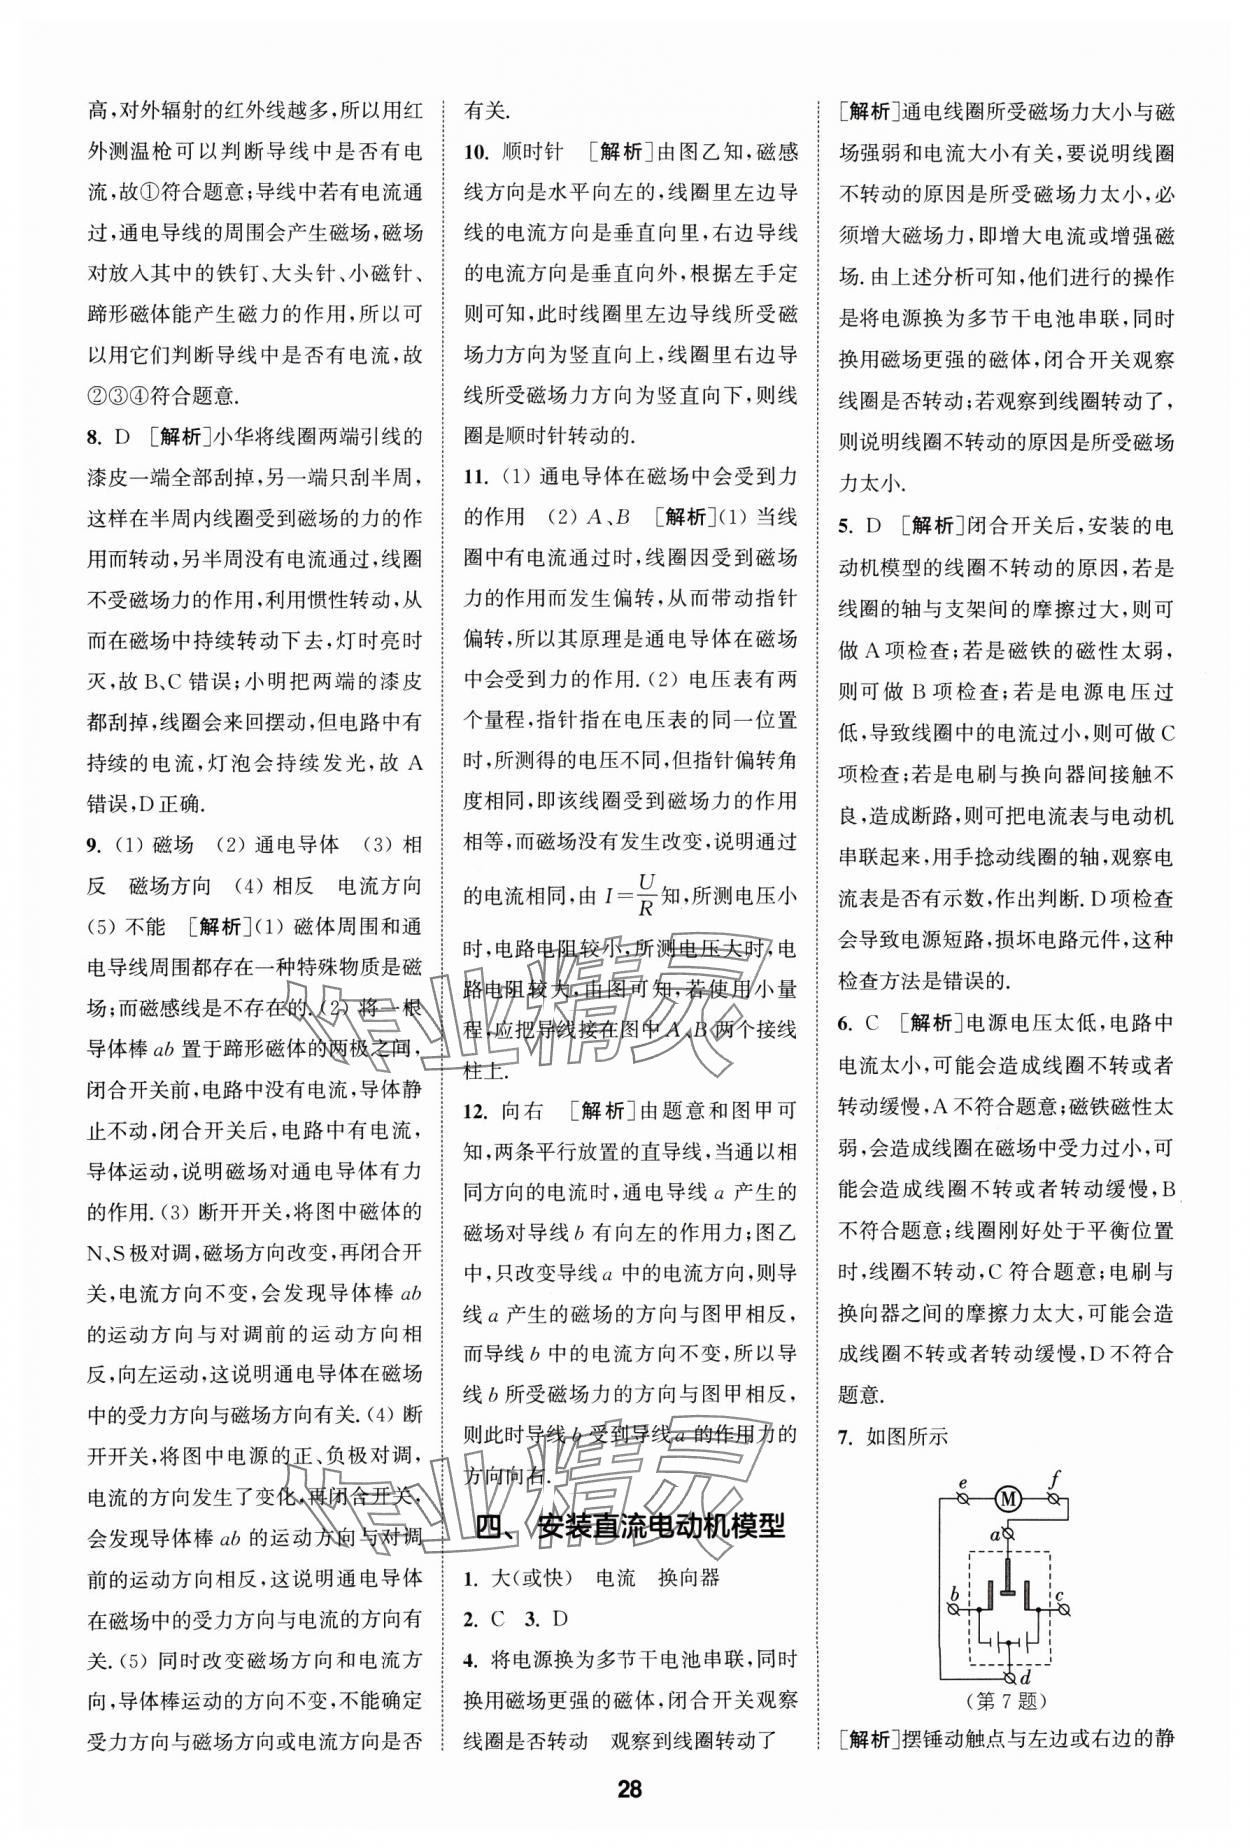 高,对外辐射的红外线越多,所以用红
外测温枪可以判断导线中是否有电
流,故①符合题意;导线中若有电流通
过,通电导线的周围会产生磁场,磁场
对放入其中的铁钉、大头针、小磁针、
蹄形磁体能产生磁力的作用,所以可
以用它们判断导线中是否有电流,故
②③④符合题意.
8. D [解析]小华将线圈两端引线的
漆皮一端全部刮掉,另一端只刮半周,
这样在半周内线圈受到磁场的力的作
用而转动,另半周没有电流通过,线圈
不受磁场力的作用,利用惯性转动,从
而在磁场中持续转动下去,灯时亮时
灭,故B、C错误;小明把两端的漆皮
都刮掉,线圈会来回摆动,但电路中有
持续的电流,灯泡会持续发光,故A
错误,D正确.
9. (1) 磁场 (2) 通电导体 (3) 相
反 磁场方向 (4) 相反 电流方向
(5) 不能 [解析](1) 磁体周围和通
电导线周围都存在一种特殊物质是磁
场;而磁感线是不存在的.(2) 将一根
导体棒ab置于蹄形磁体的两极之间,
闭合开关前,电路中没有电流,导体静
止不动,闭合开关后,电路中有电流,
导体运动,说明磁场对通电导体有力
的作用.(3) 断开开关,将图中磁体的
N、S极对调,磁场方向改变,再闭合开
关,电流方向不变,会发现导体棒ab
的运动方向与对调前的运动方向相
反,向左运动,这说明通电导体在磁场
中的受力方向与磁场方向有关.(4) 断
开开关,将图中电源的正、负极对调,
电流的方向发生了变化,再闭合开关,
会发现导体棒ab的运动方向与对调
前的运动方向相反,这说明通电导体
在磁场中的受力方向与电流的方向有
关.(5) 同时改变磁场方向和电流方
向,导体棒运动的方向不变,不能确定
受力方向与磁场方向或电流方向是否
有关.
10. 顺时针 [解析]由图乙知,磁感
线方向是水平向左的,线圈里左边导
线的电流方向是垂直向里,右边导线
的电流方向是垂直向外,根据左手定
则可知,此时线圈里左边导线所受磁
场力方向为竖直向上,线圈里右边导
线所受磁场力方向为竖直向下,则线
圈是顺时针转动的.
11. (1) 通电导体在磁场中会受到力
的作用 (2) A、B [解析](1) 当线
圈中有电流通过时,线圈因受到磁场
力的作用而发生偏转,从而带动指针
偏转,所以其原理是通电导体在磁场
中会受到力的作用.(2) 电压表有两
个量程,指针指在电压表的同一位置
时,所测得的电压不同,但指针偏转角
度相同,即该线圈受到磁场力的作用
相等,而磁场没有发生改变,说明通过
的电流相同,由 I=U/R 知,所测电压小
时,电路电阻较小,所测电压大时,电
路电阻较大,由图可知,若使用小量
程,应把导线接在图中A、B两个接线
柱上.
12. 向右 [解析]由题意和图甲可
知,两条平行放置的直导线,当通以相
同方向的电流时,通电导线a产生的
磁场对导线b有向左的作用力;图乙
中,只改变导线a中的电流方向,则导
线a产生的磁场的方向与图甲相反,
而导线b中的电流方向不变,所以导
线b所受磁场力的方向与图甲相反,
则此时导线b受到导线a的作用力的
方向向右.
四、安装直流电动机模型
1. 大(或快) 电流 换向器
2. C 3. D
4. 将电源换为多节干电池串联,同时
换用磁场更强的磁体,闭合开关观察
线圈是否转动 观察到线圈转动了
[解析]通电线圈所受磁场力大小与磁
场强弱和电流大小有关,要说明线圈
不转动的原因是所受磁场力太小,必
须增大磁场力,即增大电流或增强磁
场.由上述分析可知,他们进行的操作
是将电源换为多节干电池串联,同时
换用磁场更强的磁体,闭合开关观察
线圈是否转动;若观察到线圈转动了,
则说明线圈不转动的原因是所受磁场
力太小.
5. D [解析]闭合开关后,安装的电
动机模型的线圈不转动的原因,若是
线圈的轴与支架间的摩擦过大,则可
做A项检查;若是磁铁的磁性太弱,
则可做B项检查;若是电源电压过
低,导致线圈中的电流过小,则可做C
项检查;若是电刷与换向器间接触不
良,造成断路,则可把电流表与电动机
串联起来,用手捻动线圈的轴,观察电
流表是否有示数,作出判断.D项检查
会导致电源短路,损坏电路元件,这种
检查方法是错误的.
6. C [解析]电源电压太低,电路中
电流太小,可能会造成线圈不转或者
转动缓慢,A不符合题意;磁铁磁性太
弱,会造成线圈在磁场中受力过小,可
能会造成线圈不转或者转动缓慢,B
不符合题意;线圈刚好处于平衡位置
时,线圈不转动,C符合题意;电刷与
换向器之间的摩擦力太大,可能会造
成线圈不转或者转动缓慢,D不符合
题意.
7. 如图所示
e
M
f
a
b
c
d
(第7题)
[解析]摆锤动触点与左边或右边的静
28
作业精灵
作业精灵